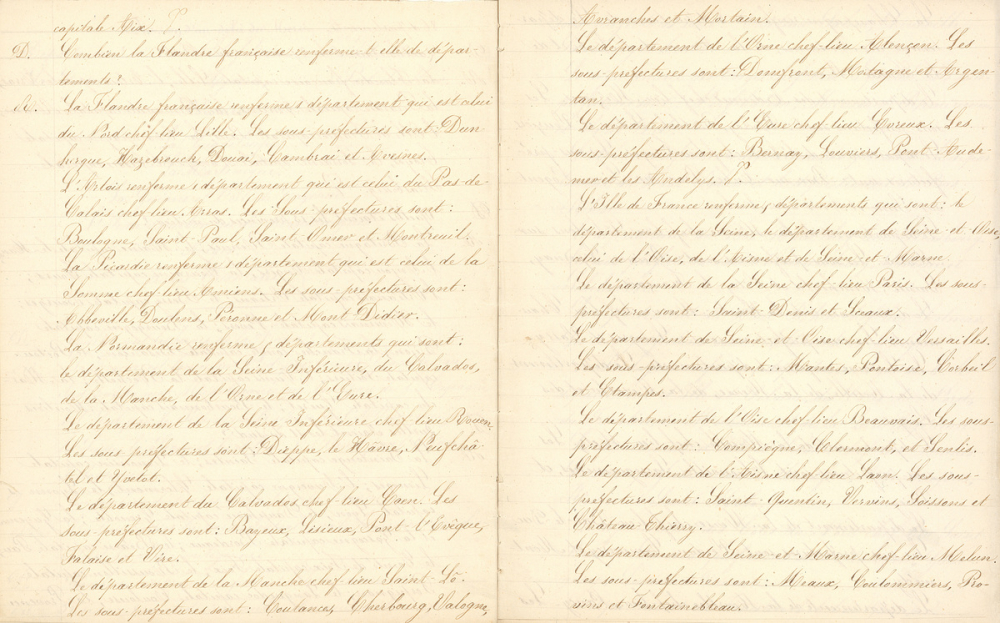 capitale Aix. P.
D. Combien la Flandre française renferme-t-elle de dépar-
tements?
R. La Flandre française renferme 1 département qui est celui
du Nord chef-lieu Lille. Les sous-préfectures sont: Dun
kerque, Hazebrouck, Douai, Cambrai et Avesnes.
L'Artois renferme 1 département qui est celui du Pas-de-
Calais chef-lieu Arras. Les Sous-préfectures sont:
Boulogne, Saint-Paul, Saint-Omer et Montreuil.
La Picardie renferme 1 département qui est celui de la
Somme chef-lieu Amiens. Les sous-préfectures sont:
Abbeville, Doulens, Péronne et Mont-Didier.
La Normandie renferme 5 départements qui sont:
le département de la Seine Inférieure, du Calvados,
de la Manche, de l'Orne et de l'Eure.
Le département de la Seine Inférieure chef-lieu Rouen.
Les sous-préfectures sont: Dieppe, le Hâvre, Neufchâ
tel et Yvetot.
Le département du Calvados chef-lieu Caen. Les
sous-préfectures sont: Bayeux, Lisieux, Pont-l'Evêque,
Falaise et Vire.
Le département de la Manche chef-lieu Saint-Lô.
Les sous-préfectures sont: Coutances, Cherbourg, Valogne,
Avranches et Mortain.
Le département de l'Orne chef-lieu Alençon. Les
sous-préfectures sont: Domfront, Mortagne et Argen-
tan.
Le département de l'Eure chef-lieu Evreux. Les
sous-préfectures sont: Bernay, Louviers, Pont-Aude-
mer et les Andelys. P.
L'Ille de France renferme 5 départements qui sont: le
département de la Seine, le département de Seine-et-Oise,
celui de l'Oise, de l'Aisne et de Seine-et-Marne
Le département de la Seine chef-lieu Paris. Les sous-
préfectures sont: Saint-Denis et Sceaux.
Le département de Seine-et-Oise chef-lieu Versailles.
Les sous-préfectures sont: Mantes, Pontoise, Corbeil
et Etampes.
Le département de l'Oise chef-lieu Beauvais. Les sous-
préfectures sont: Compiègne, Clermont, et Senlis.
Le département de l'Aisne chef-lieu Laon. Les sous-
préfectures sont: Saint-Quentin, Vervins, Soissons et
Château-Thierry.
Le département de Seine-et-Marne chef-lieu Melun.
Les sous-préfectures sont: Meaux, Coulommiers, Pro-
vins et Fontainebleau.